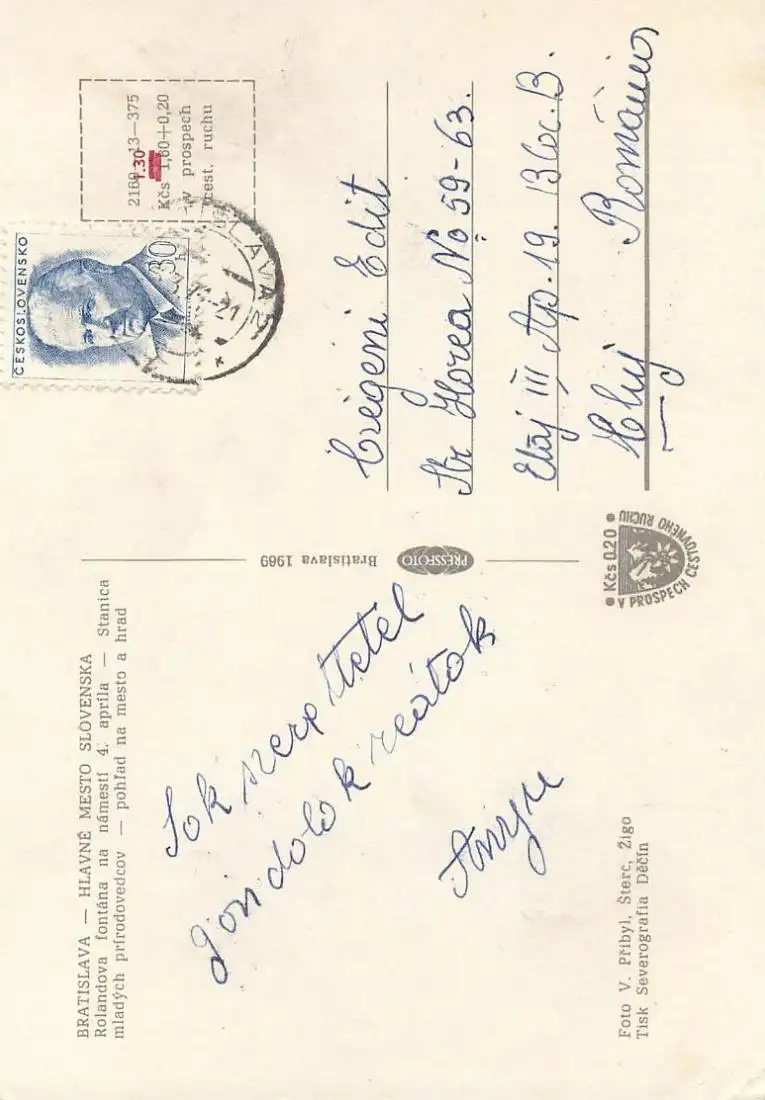 BRATISLAVA — HLAVNÉ MESTO SLOVENSKA
Rolandova fontána na námestí 4. apríla — Stanica
mladých prírodovedcov — pohľad na mesto a hrad
Sok szeretettel
gondolok reátok
Anyu
Foto V. Přibyl, Šterc, Žigo
Tisk Severografia Děčín
Bratislava 1969
PRESSFOTO
Kčs 0,20
V PROSPECH CESTOVNÉHO RUCHU
ČESKOSLOVENSKO
30 h
13—375
1.30
Kčs 1,60+0,20
v prospech
cest. ruchu
Edit
Str Horea No 59-63.
Etaj III Ap. 19. Bloc. B.
Cluj România